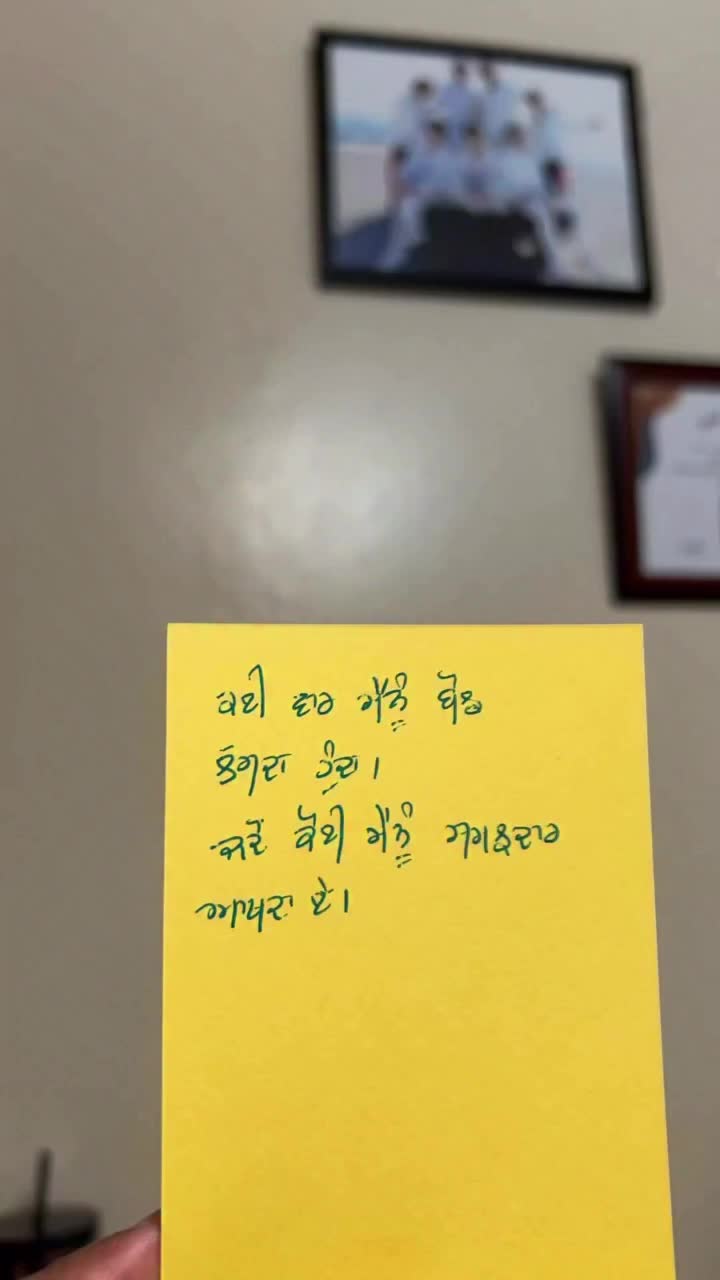 ਕਈ ਵਾਰ ਮੈਨੂੰ ਬੋਝ
ਲੱਗਦਾ ਹੁੰਦਾ।
ਜਦੋਂ ਕੋਈ ਮੈਨੂੰ ਸਮਝਦਾਰ
ਆਖਦਾ ਏ।